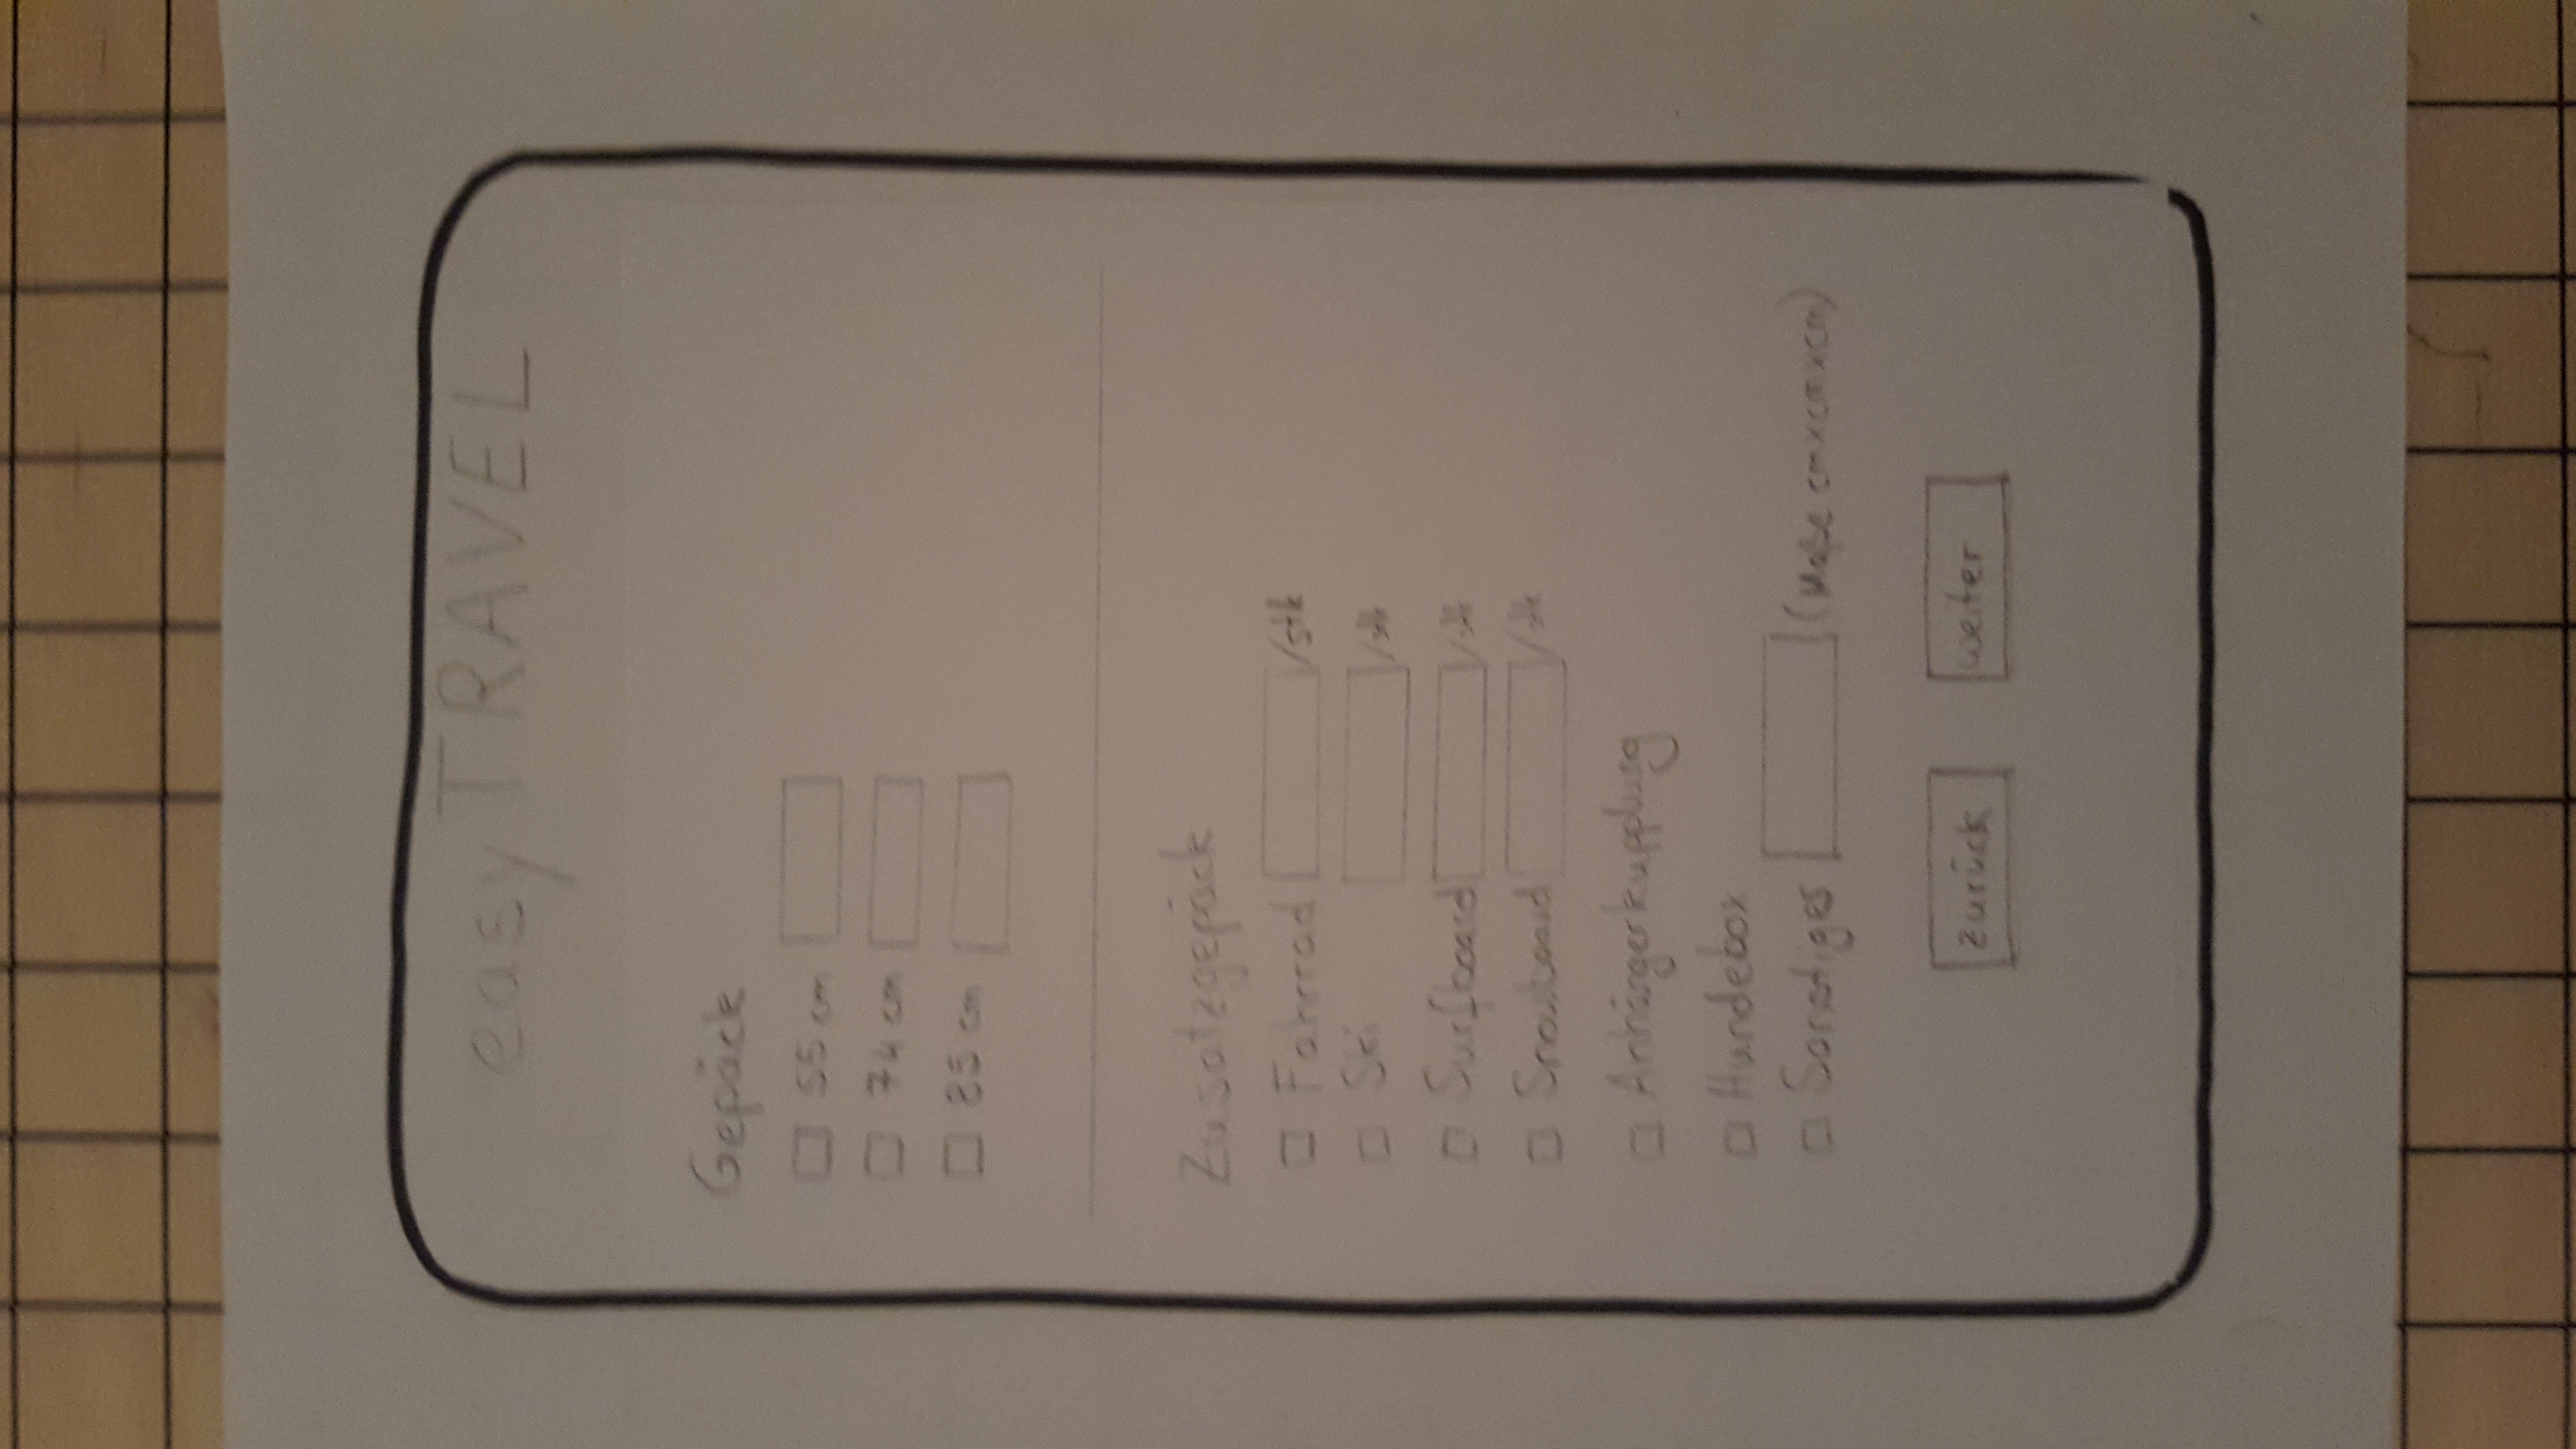 easyTRAVEL
Gepäck
55 cm
74 cm
85 cm
Zusatzgepäck
Fahrrad /stk
Ski /stk
Surfboard /stk
Snowboard /stk
Anhängerkupplung
Hundebox
Sonstiges (Maße cmxcmxcm)
zurück weiter